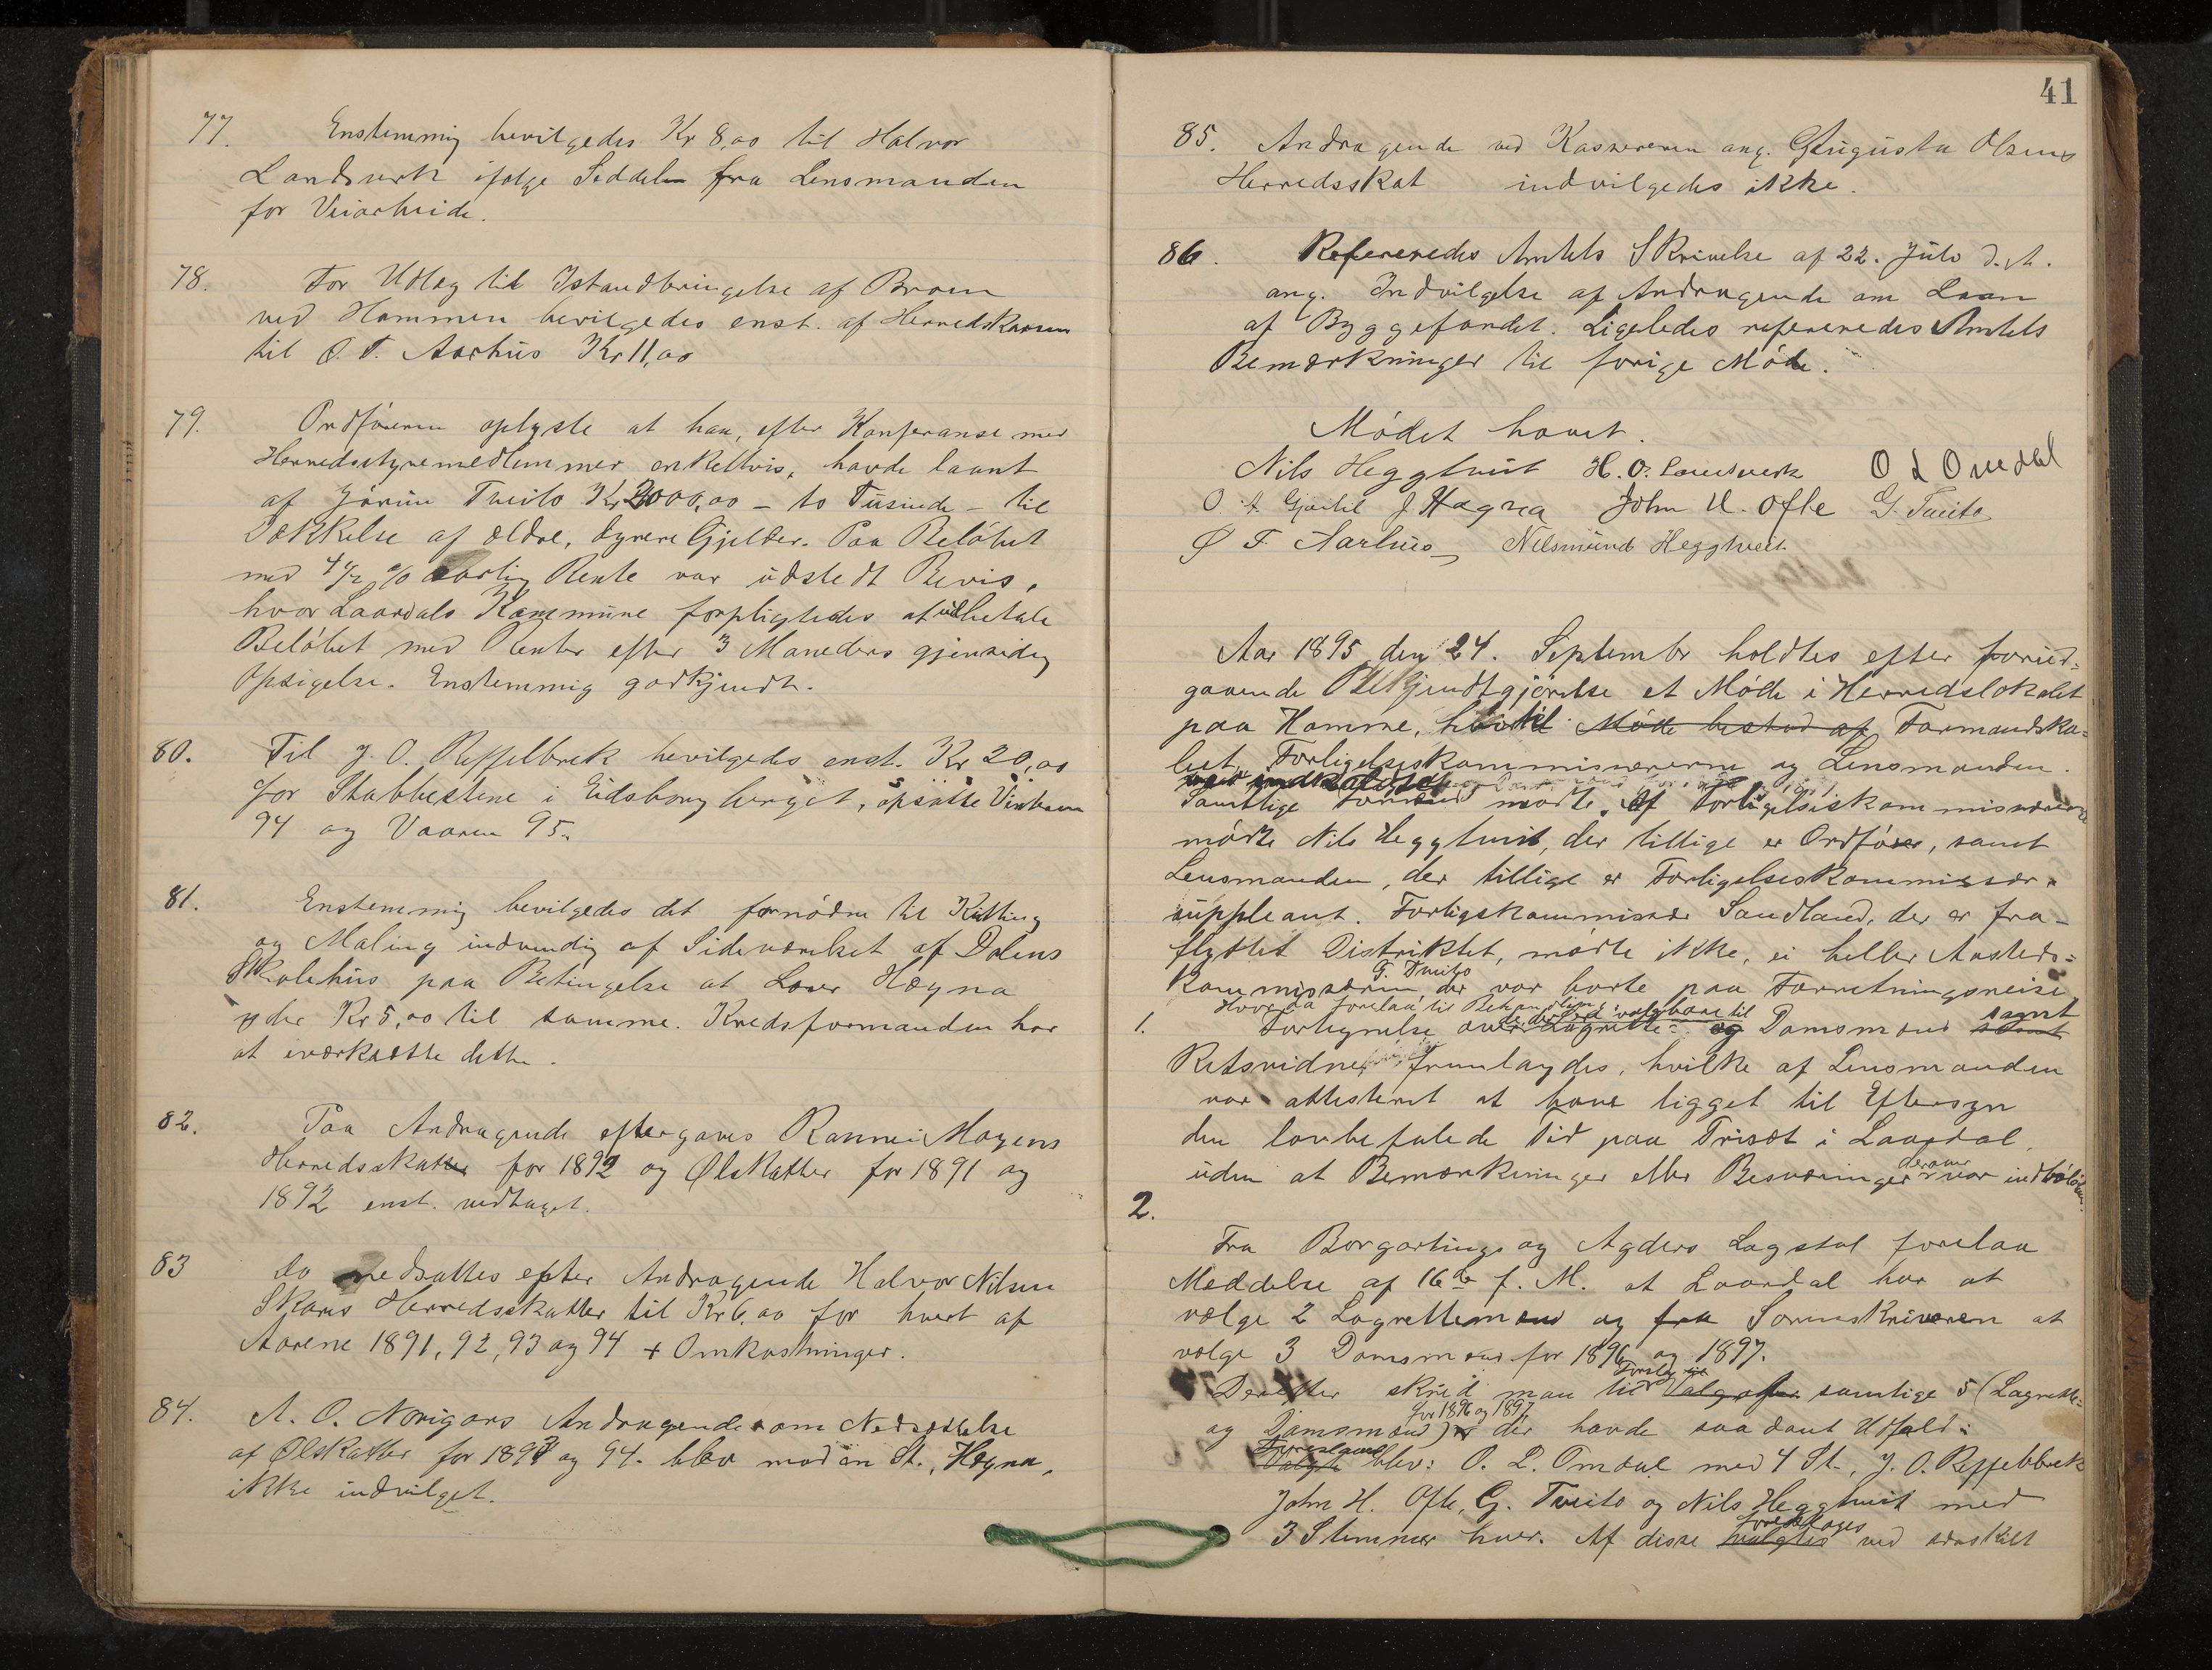 77. Enstemmig bevilgedes Kr 8,00 til Halvor
Landsverk ifølge Seddel fra Lensmanden
for Veiarbeide.
78. For Udlæg til Istandbringelse af Broen
ved Hammen bevilgedes enst. af Herredskassen
til Ø. T. Aarhus Kr 11,00
79. Ordføreren oplyste at han, efter Konferanse med
Herredsstyremedlemmer enkeltvis, havde laant
af Jørun Tveito Kr 2000,00 – to Tusinde – til
Dækkelse af ældre, dyrere Gjelder. Paa Beløbet
med 4 1/2 % aarlig Rente var udstedt Bevis,
hvor Laardals Kommune forpligtedes at udbetale
Beløbet med Renter efter 3 Maneders gjensidig
Opsigelse. Enstemmig godkjendt.
80. Til J. O. Reffelbrek bevilgedes enst. Kr 20,00
for Stabbestene i Eidsborgberget, opsatte Vinteren
94 og Vaaren 95.
81. Enstemmig bevilgedes det fornødne til Kitting
og Maling indvendig af Sideværelset af Dalens
Skolehus paa Betingelse at Lærer Høgna
yder Kr 5,00 til samme. Kredsformanden har
at iværksætte dette.
82. Paa Andragende eftergaves Rannei Mogens
Herredsskatter for 1892 og Ølskatter for 1891 og
1892 enst. vedtaget.
83 do nedsattes efter Andragende Halvor Nilsen
Skares Herredsskatter til Kr 6,00 for hvert af
Aarene 1891, 92, 93 og 94 + Omkostninger.
84. A. O. Norigars Andragende om Nedsættelse
af Ølskatter for 1893 og 94. blev mod en St., Høgna,
ikke indvilget.
41
85. Andragende ved Kassereren ang. Augusta Olsens
Herredsskat indvilgedes ikke.
86. Refereredes Amtets Skrivelse af 22. Juli d. A.
ang. Indvilgelse af Andragende om Laan
af Byggefondet. Ligeledes refereredes Amtets
Bemærkninger til forige Møde.
Mødet hævet.
Nils Heggtveit H. O. Landsverk O L Omdal
O. A. Gjøitil J. Høgna John H. Ofte G. Tveito
Ø T. Aarhus Nilsmund Heggtveit
Aar 1895 den 24. Septembr holdtes efter forud-
gaaende Bekjendtgjørelse et Møde i Herredslokalet
paa Hamme, hvortil Møde bestod af Formandska-
bet, Forligelseskommissærerne og Lensmanden.
var indkaldt
Samtlige mødte. Af Forligelseskommissærerne
mødte Nils Heggtveit, der tillige er Ordfører, samt
Lensmanden, der tillige er Forligelseskommissær-
suppleant. Forligskommissær Sandland, der er fra-
flyttet Distriktet, mødte ikke, ei heller Ansteds-
G. Tveito
kommissæren der var borte paa Forretningsreise,
Hvor da forelaa til Behandling:
de dertil valgbare til samt
1. Fortegnelse over Lagrette- og Domsmænd samt
Retsvidner fremlagdes, hvilke af Lensmanden
var attesteret at have ligget til Eftersyn
den lovbefalede Tid paa Trisæt i Laardal,
uden at Bemærkninger eller Besværinger derover var indløbne.
2.
Fra Borgartings og Agders Lagstol forelaa
Meddelse af 16de f. M. at Laardal har at
vælge 2 Lagrettemænd og fra Sorenskriveren at
vælge 3 Domsmænd for 1896 og 1897.
Forslag til
Derefter skred man til Valg af samtlige 5 (Lagrette-
for 1896 og 1897
og Domsmænd) der havde saadant Udfald:
Foreslaaede
Valgte blev: O. L. Omdal med 4 St., J. O. Reffelbrek
John H. Ofte, G. Tveito og Nils Heggtveit med
foreslaaes
3 Stemmer hver. Af disse valgtes ved særskilt